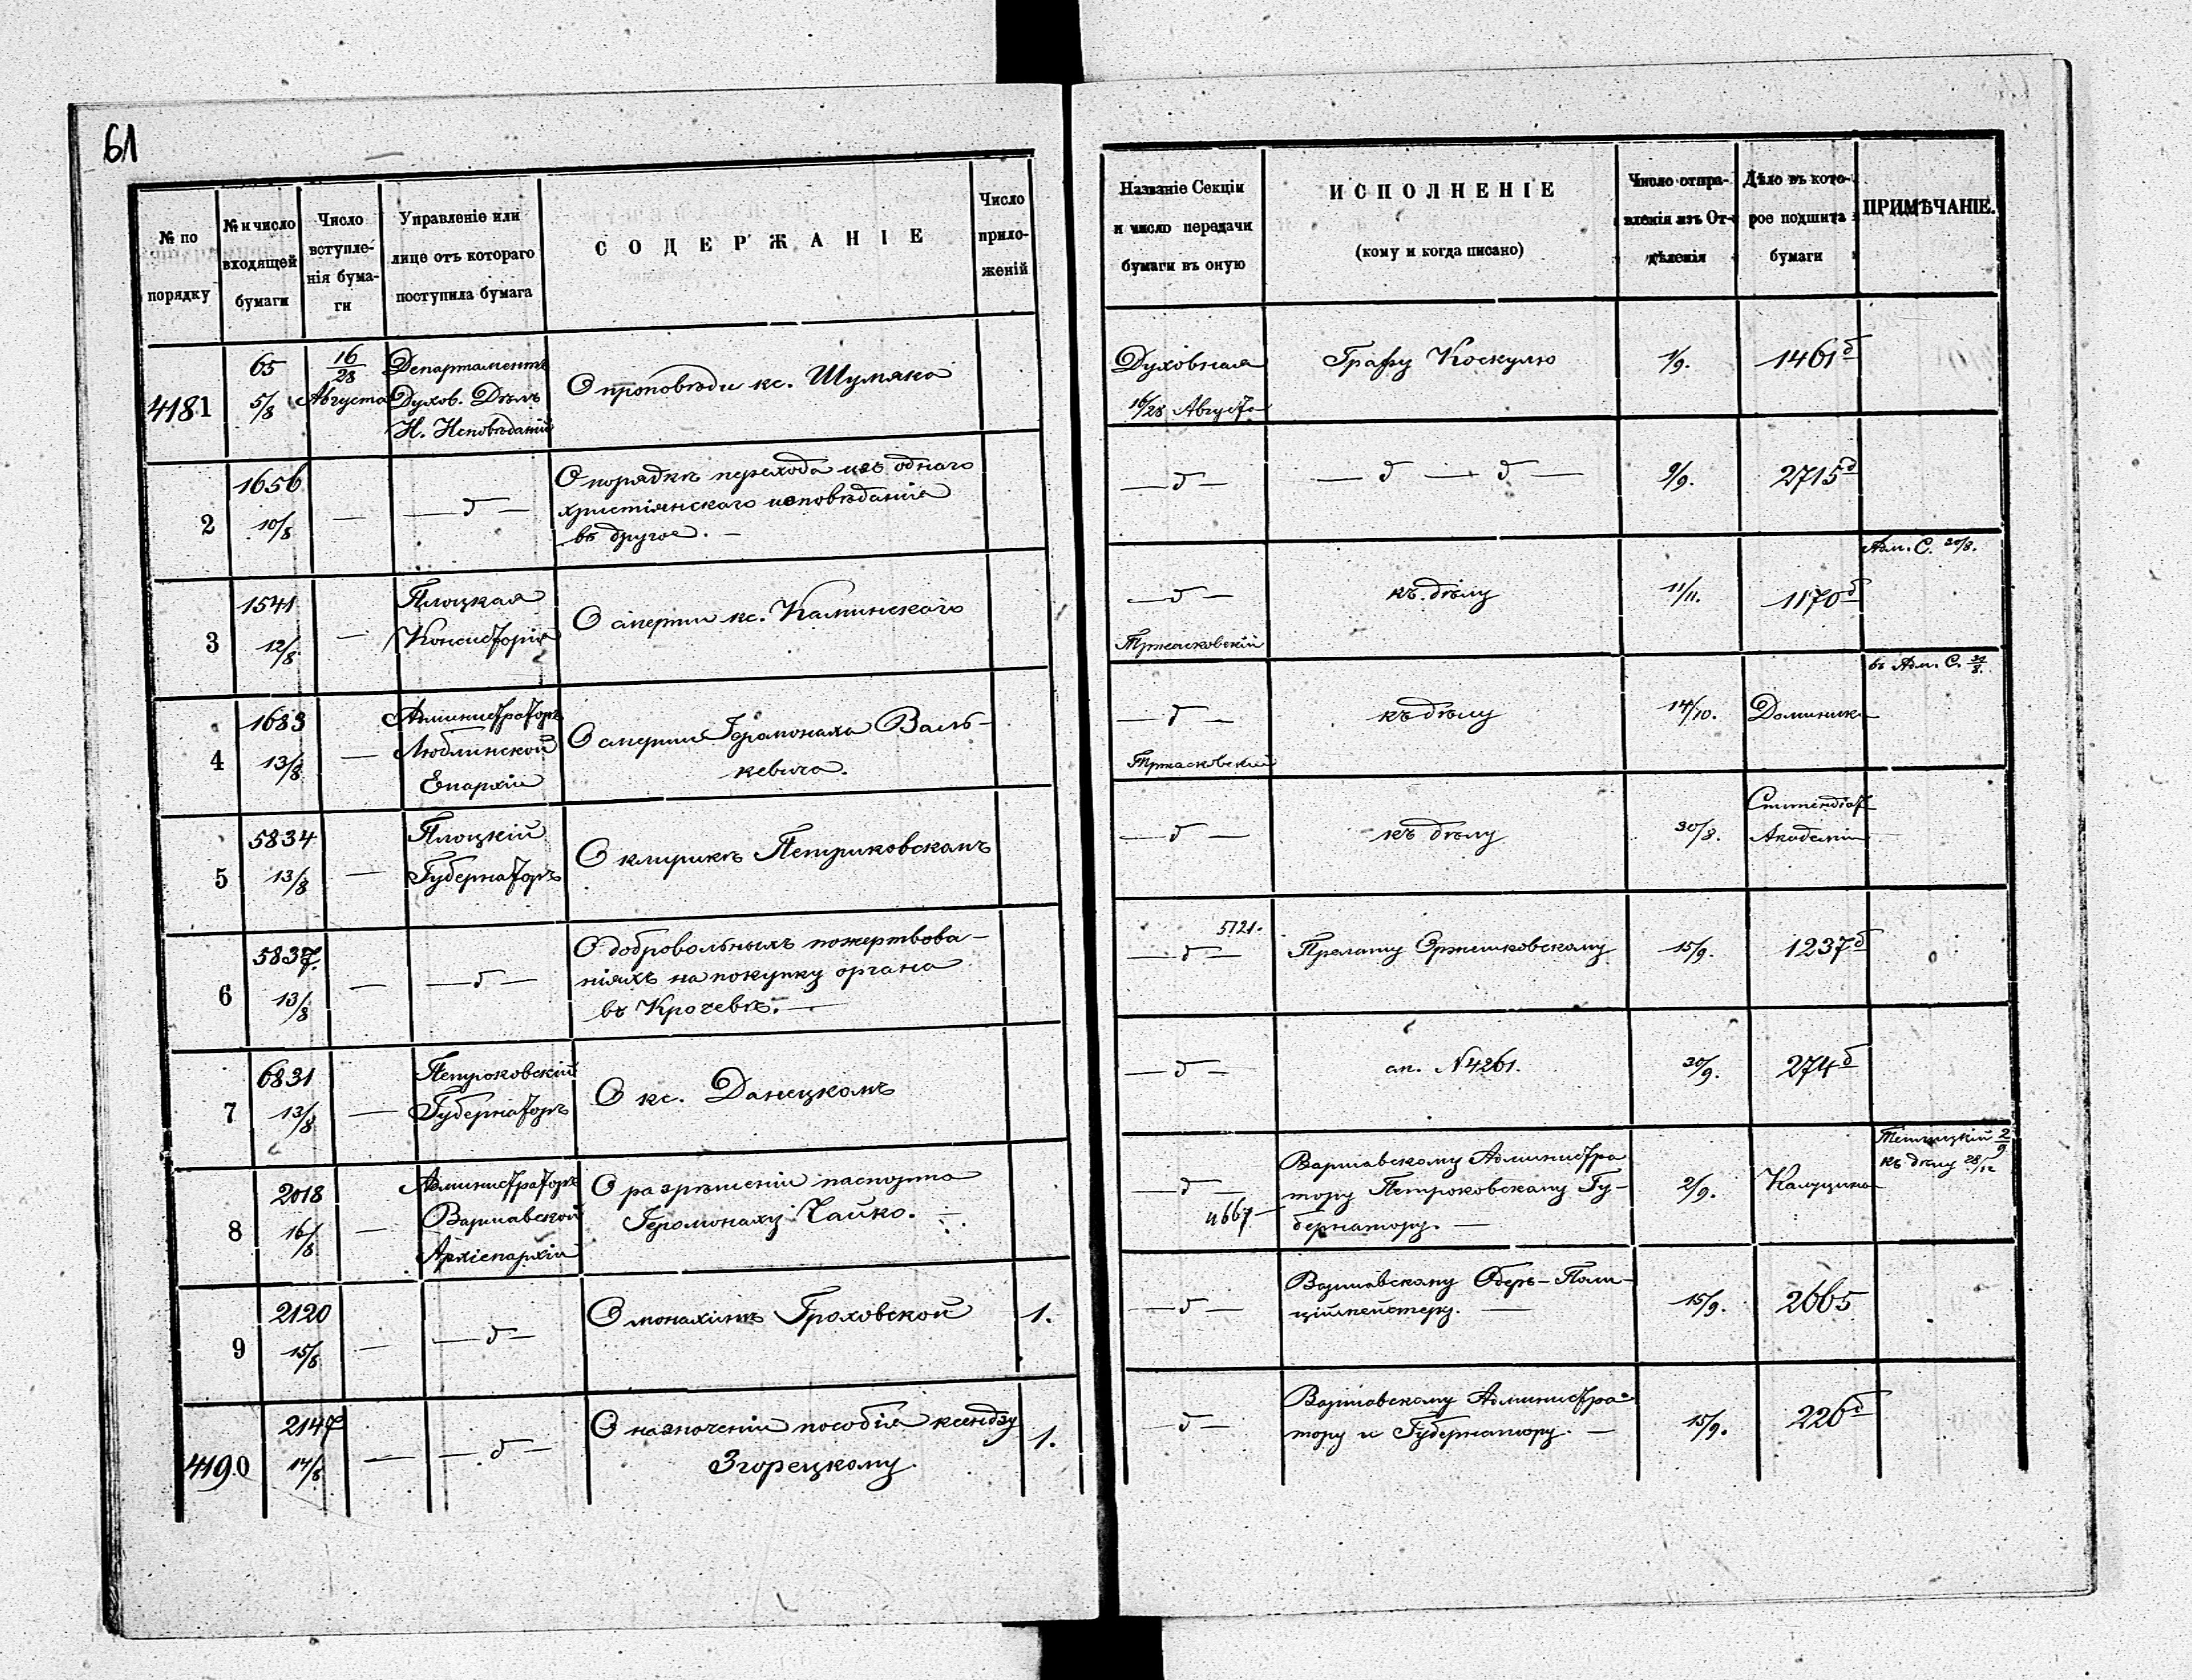 61
№ по порядку
№ и число входящей бумаги
Число вступле-
нія бума-
ги
Управленіе или
лице отъ котораго
поступила бумага
СОДЕРЖАНІЕ
Число
прило-
женій
Названіе Секціи
и число передачи
бумаги въ оную
ИСПОЛНЕНІЕ
(кому и когда писано)
Число отпра-
вленія изъ От-
дѣленія
Дѣло въ кото-
рое подшита
бумаги
ПРИМѢЧАНІЕ.
4181
65
5/8
16/28
Августа
Департаментъ
Духов. Дѣлъ
И. Исповѣданій
О проповѣди кс. Шумяка
Духовная
16/28 Августа
Графу Коскулю
1/9.
1461 б
2
1656
10/8
—
— д —
О порядкѣ перехода изъ однаго
христіянскаго исповѣданія
въ другое. —
— д —
— д — д —
9/9.
2715 д
3
1541
12/8
—
Плоцкая
Консисторія
О смерти кс. Каминскаго
— д —
Тржасковскій
къ дѣлу
11/11.
1170 б
Адм. С. 30/8.
4
1683
13/8
—
Администраторъ
Люблинской
Епархіи
О смерти Іеромонаха Валь-
кевича.
— д —
Тржасковскій
къ дѣлу
14/10.
Доминик
въ Адм. С. 31/8.
5
5834
13/8
—
Плоцкій
Губернаторъ
О клирикѣ Петриковскомъ
— д —
къ дѣлу
30/8.
Стипендіат
Академіи
6
5837.
13/8
—
— д —
О добровольныхъ пожертвова-
ніяхъ на покупку органа
въ Крочевѣ. —
5121.
— д —
Прелату Оржешковскому
15/9.
1237 б
7
6831
13/8
—
Петроковскій
Губернаторъ
О кс. Данецкомъ
— д —
ап. N 4261.
30/9.
274 б
8
2018
16/8
—
Администраторъ
Варшавской
Архіепархіи
О разрѣшеніи паспорта
Іеромонаху Чайко. —
— д —
4667
Варшавскому Администра
тору Петроковскому Гу-
бернатору. —
2/9.
Калуцина
2/9
къ дѣлу 28/12
9
2120
15/8
—
— д —
О монахинѣ Гроховской
1.
— д —
Варшавскому Оберъ-Поли-
цїймейстеру. —
15/9.
2665
4190
2147
14/8
—
— д —
О назначеніи пособія ксендзу
Згорецкому.
1.
— д —
Варшавскому Администра-
тору и Губернатору. —
15/9.
226 б